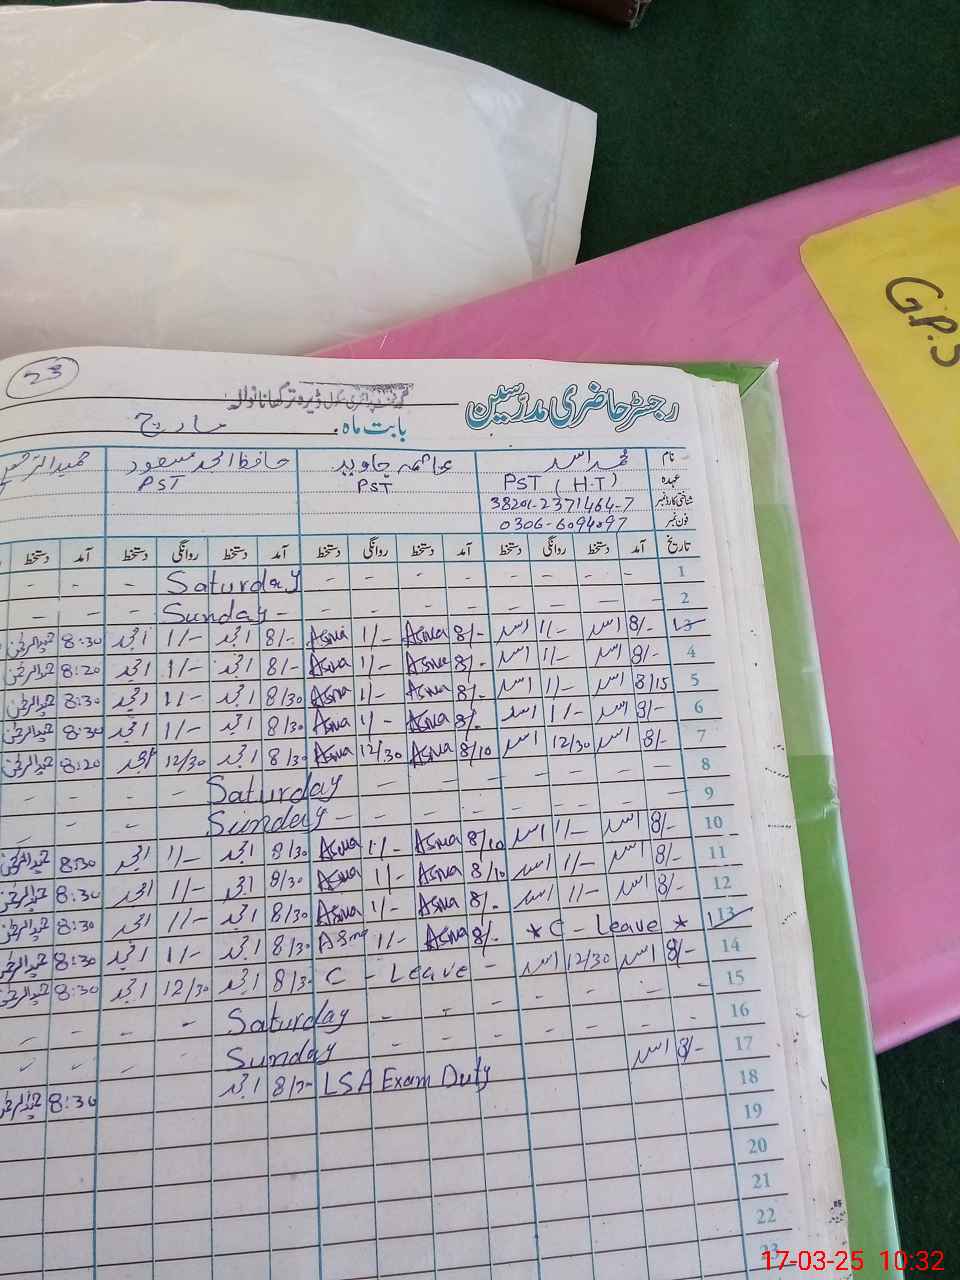 G.P.S
23
رجسٹر حاضری مدرسین
ڈیرہ ترکھانانوالہ
بابت ماہ . مارچ
نام محمد اسد عاصمہ جاوید حافظ امجد مسعود
عہدہ PST (H.T) PST PST
شناختی کارڈ نمبر 38201-2371464-7
فون نمبر 0306-6094097
تاریخ آمد دستخط روانگی دستخط آمد دستخط روانگی دستخط آمد دستخط روانگی دستخط آمد دستخط
1 - - - - - - - - Saturday - - -
2 - - - - - - - - Sunday - - -
3 8/- اسد 1/- اسد 8/- Asma 1/- Asma 8/- امجد 1/- امجد 8:30 عبدالرحمٰن
4 8/- اسد 1/- اسد 8/- Asma 1/- Asma 8/- امجد 1/- امجد 8:20 عبدالرحمٰن
5 8/15 اسد 1/- اسد 8/- Asma 1/- Asma 8/30 امجد 1/- امجد 8:30 عبدالرحمٰن
6 8/- اسد 1/- اسد 8/- Asma 1/- Asma 8/30 امجد 1/- امجد 8:30 عبدالرحمٰن
7 8/- اسد 12/30 اسد 8/10 Asma 12/30 Asma 8/30 امجد 12/30 امجد 8:20 عبدالرحمٰن
8 - - - - - - - Saturday - - - -
9 - - - - - - - Sunday - - - -
10 8/- اسد 1/- اسد 8/10 Asma 1/- Asma 8/30 امجد 1/- امجد 8:30 عبدالرحمٰن
11 8/- اسد 1/- اسد 8/10 Asma 1/- Asma 8/30 امجد 1/- امجد 8:30 عبدالرحمٰن
12 8/- اسد 1/- اسد 8/- Asma 1/- Asma 8/30 امجد 1/- امجد 8:30 عبدالرحمٰن
13 * C - Leave * 8/- Asma 1/- Asma 8/30 امجد 1/- امجد 8:30 عبدالرحمٰن
14 8/- اسد 12/30 اسد C - Leave - 8/30 امجد 12/30 امجد 8:30 عبدالرحمٰن
15 - - - - - - Saturday - - -
16 - - - - - - Sunday - - -
17 8/- اسد LSA Exam Duty 8/30 امجد 8:30 عبدالرحمٰن
18
19
20
21
22
23
17-03-25 10:32